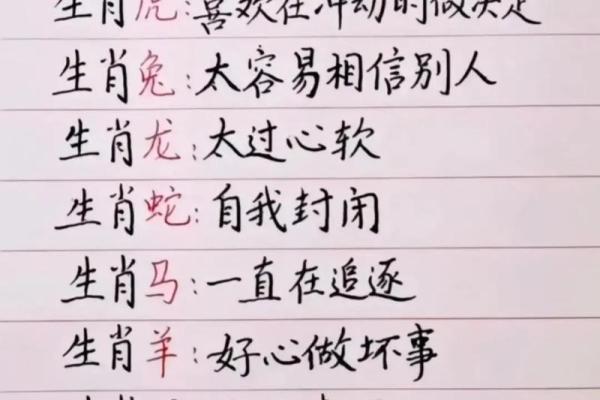 生肖虎:喜欢在冲动时做决定
生肖兔:太容易相信别人
生肖龙:太过心软
生肖蛇:自我封闭
生肖马:一直在追逐
生肖羊:好心做坏事